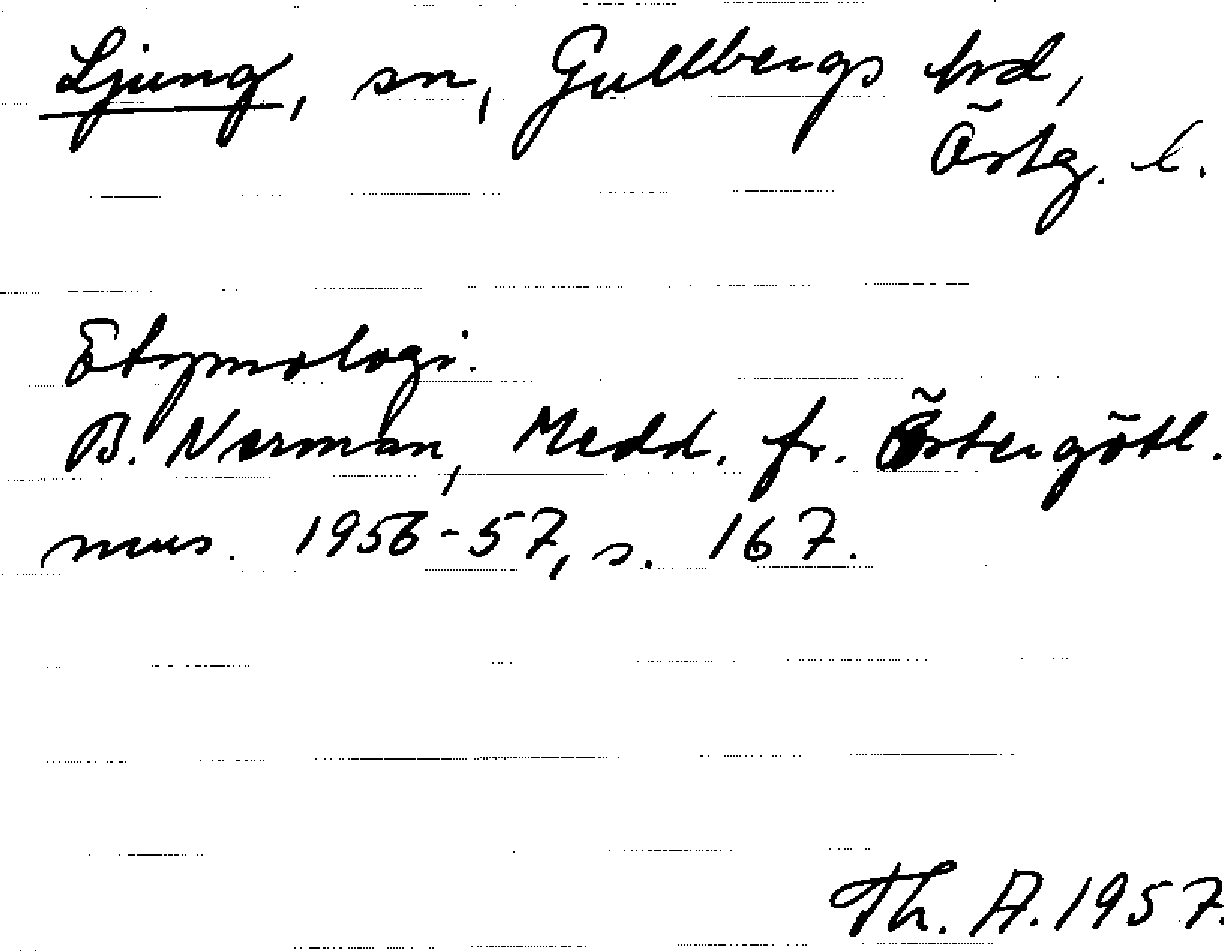 Ljung, sn, Gullbergs hrd,
Östg. l.
Etymologi.
B. Nerman, Medd. fr. Östergötl.
mus. 1956-57, s. 167.
Th. A. 1957.